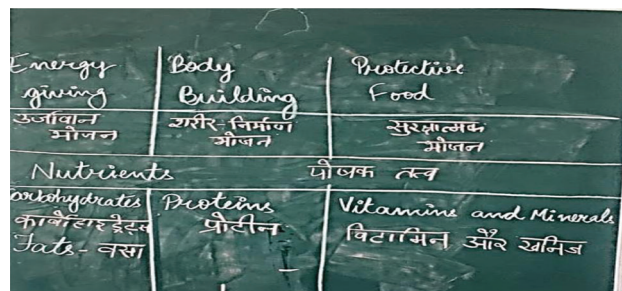 Energy giving
Body Building
Protective Food
उर्जावान भोजन
शरीर-निर्माण भोजन
सुरक्षात्मक भोजन
Nutrients पोषक तत्व
Carbohydrates
कार्बोहाइड्रेट्स
Fats - वसा
Proteins
प्रोटीन
Vitamins and Minerals
विटामिन और खनिज